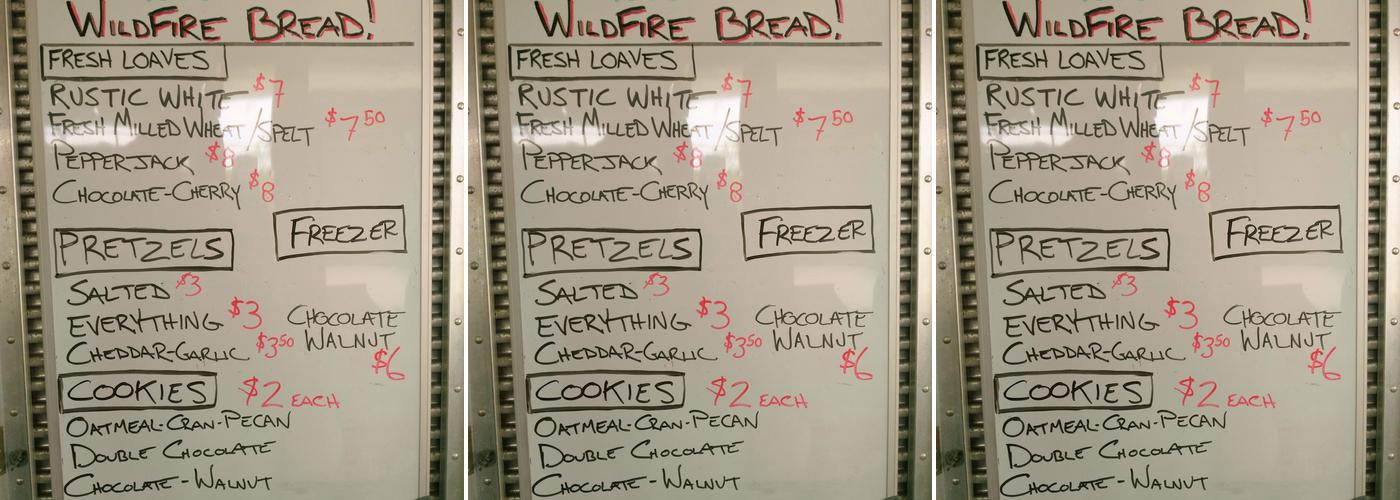 WILDFIRE BREAD!
FRESH LOAVES
RUSTIC WHITE $7
FRESH MILLED WHEAT/SPELT $7.50
PEPPERJACK $8
CHOCOLATE-CHERRY $8
FREEZER
PRETZELS
SALTED $3
EVERYTHING $3
CHEDDAR-GARLIC $3.50
CHOCOLATE
WALNUT
$6
COOKIES $2 EACH
OATMEAL-CRAN-PECAN
DOUBLE CHOCOLATE
CHOCOLATE-WALNUT
WILDFIRE BREAD!
FRESH LOAVES
RUSTIC WHITE $7
FRESH MILLED WHEAT/SPELT $7.50
PEPPERJACK $8
CHOCOLATE-CHERRY $8
FREEZER
PRETZELS
SALTED $3
EVERYTHING $3
CHEDDAR-GARLIC $3.50
CHOCOLATE
WALNUT
$6
COOKIES $2 EACH
OATMEAL-CRAN-PECAN
DOUBLE CHOCOLATE
CHOCOLATE-WALNUT
WILDFIRE BREAD!
FRESH LOAVES
RUSTIC WHITE $7
FRESH MILLED WHEAT/SPELT $7.50
PEPPERJACK $8
CHOCOLATE-CHERRY $8
FREEZER
PRETZELS
SALTED $3
EVERYTHING $3
CHEDDAR-GARLIC $3.50
CHOCOLATE
WALNUT
$6
COOKIES $2 EACH
OATMEAL-CRAN-PECAN
DOUBLE CHOCOLATE
CHOCOLATE-WALNUT